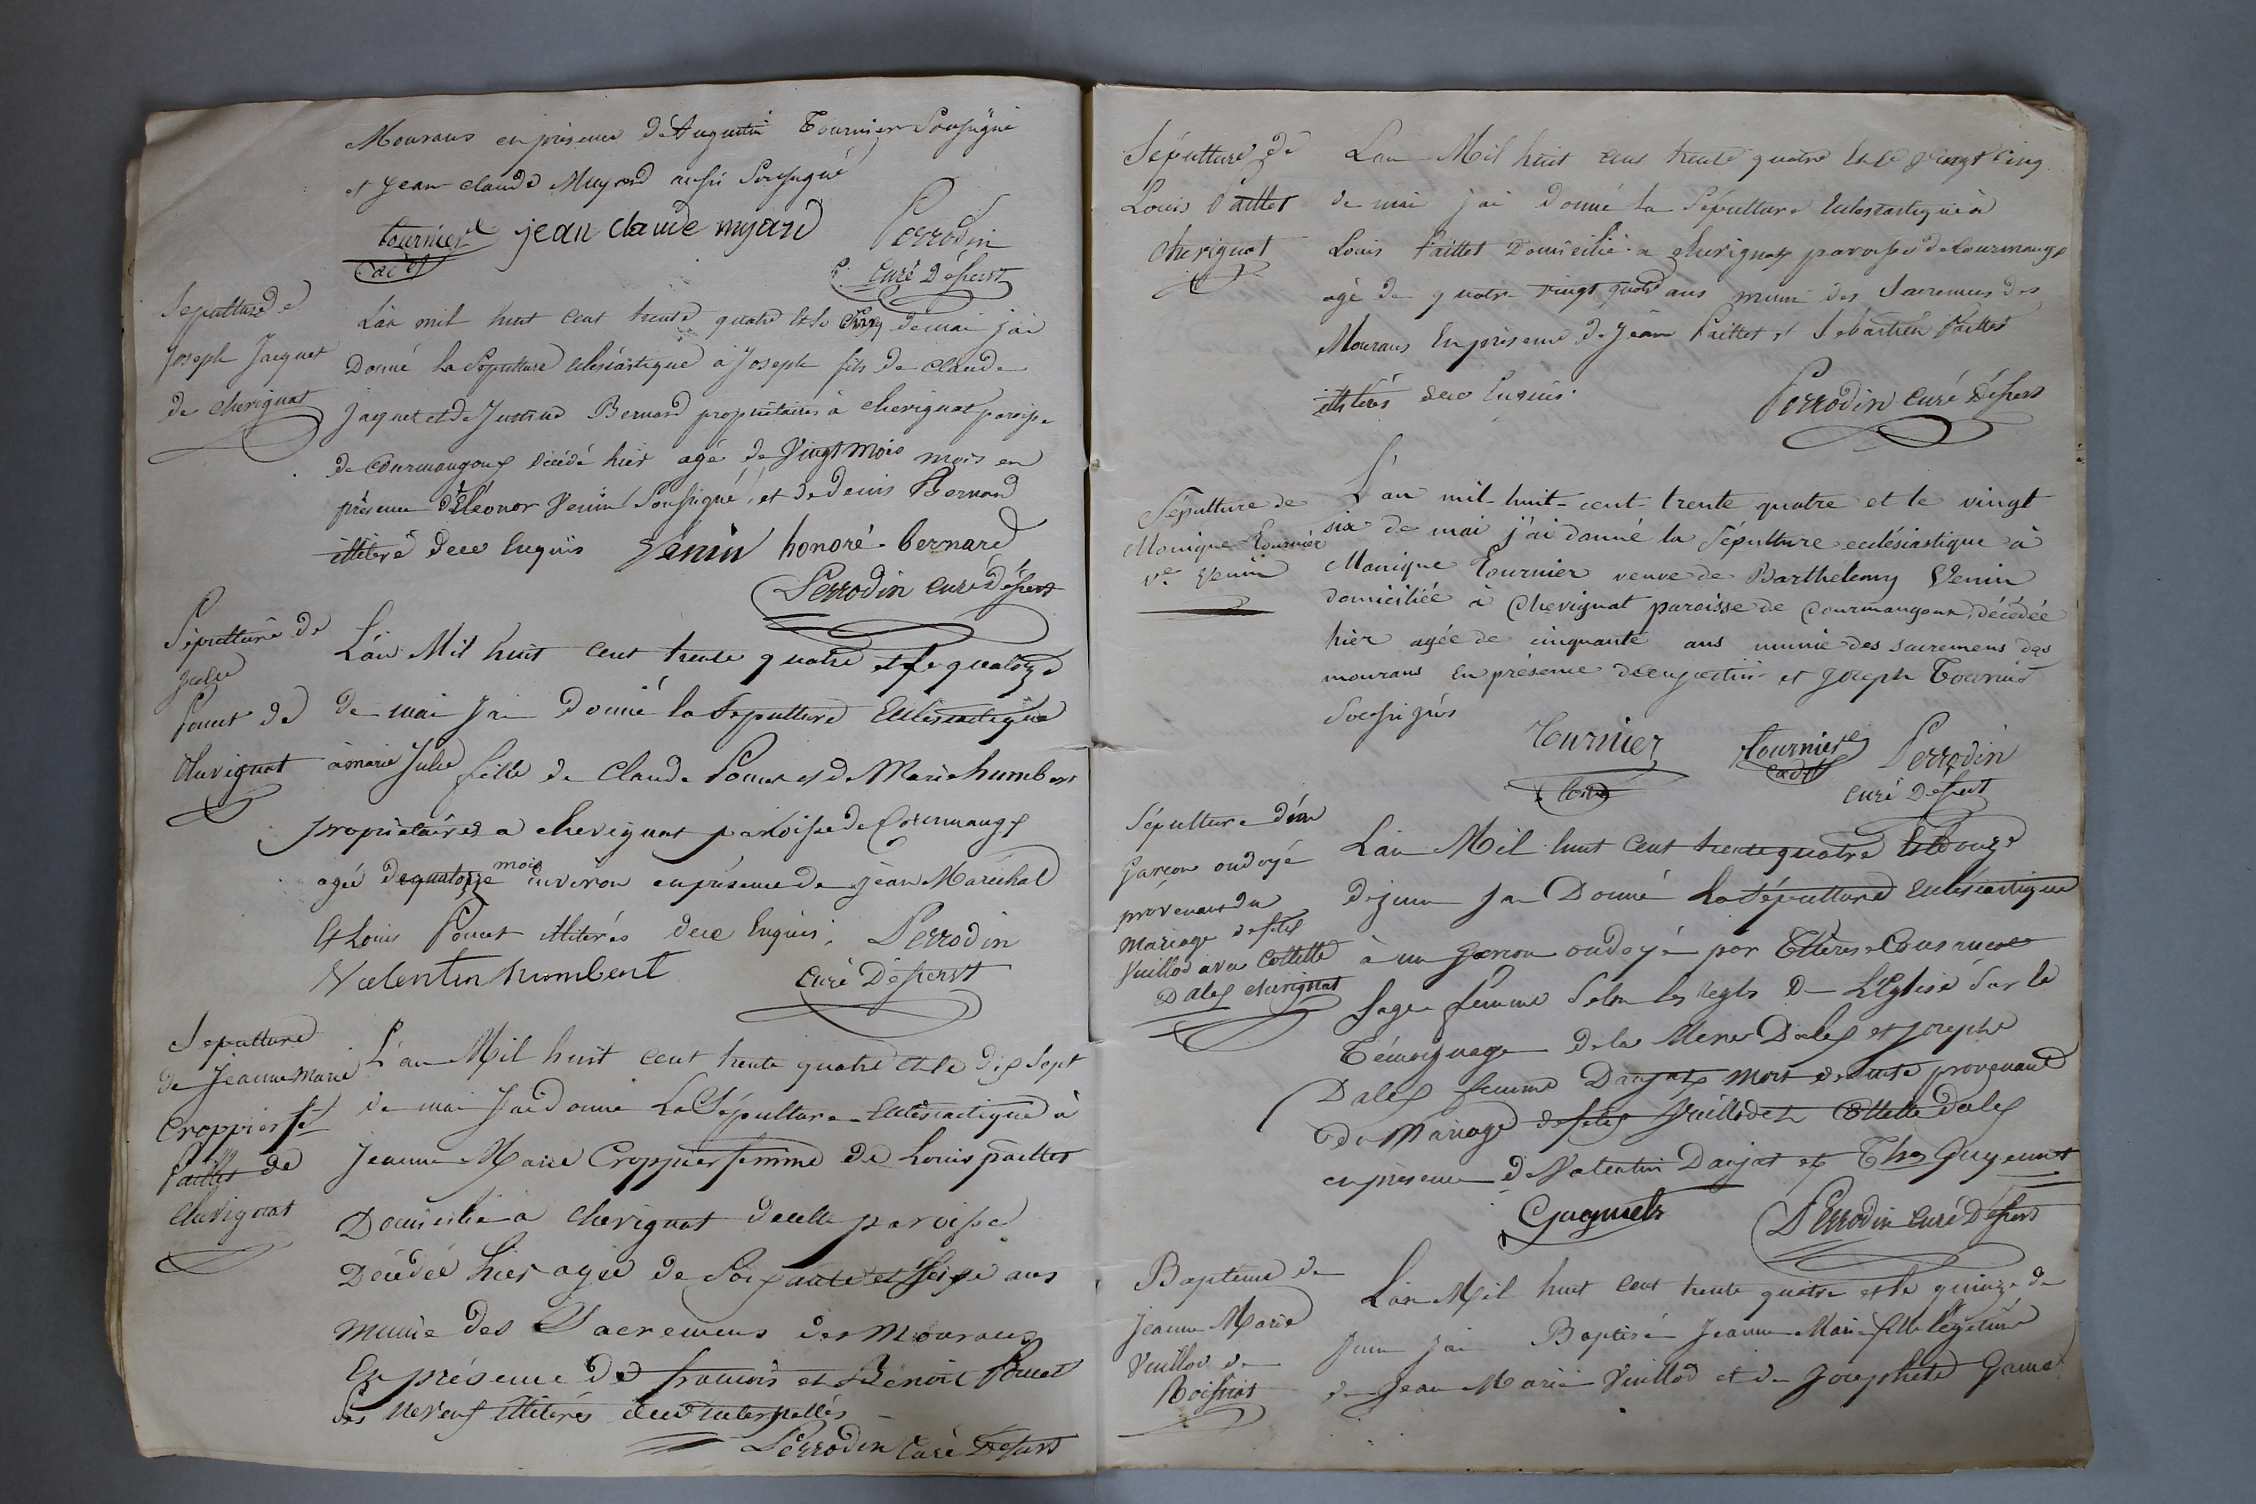 Mourans en présence d'Augustin Tournier Soussigné
et Jean claude Myard aussi Soussigné
tournier jean claude myard Perrodin
cadet curé Désserv
Sepulture de
Joseph Jacquet
de chevignat
L'an mil huit cent trente quatre et le cinq de mai j'ai
Donné la Sépulture eclésiastique à Joseph fils de Claude
Jaquet et de Justine Bernard propriétaires à chevignat paroisse
de Courmangoux décédé hier agé de Vingt mois mois en
présence d'Eléonor Venin Soussigné et de denis Bernard
illitéré de ce Enquis Venin honoré bernard
Perrodin curé Désserv
Sépulture de
Julie
Poncet de
Chevignat
L'an Mil huit cent trente quatre et le quatorze
de mai J'ai Donné la Sepulture Eclésiastique
à marie Julie fille de Claude Poncet et de Marie humbert
propriétaires a chevignat paroisse de Courmangx
agée de quatorze mois environ en présence de jean Maréchal
Et Louis Poncet illitérés de ce Enquis. Perrodin
Valentin humbert curé Désserv
Sepulture
de Jeanne Marie
Croppier fe
Paillet de
Chevignat
L'an Mil huit cent trente quatre et le dix Sept
de mai J'ai donné La Sépulture Eclésiastique à
Jeanne Marie Croppier femme de Louis paillet
Domiciliée a Chevignat de cette paroisse
Décédée hier agée de Soixante et Seize ans
munie des Sacremens des Mourans
En présence de francois et Bénoit Poncet
Ses Neveux illitérés de ce interpellés
Perrodin Curé Désserv
Sépulture de
Louis Paillet
Chevignat
L'an Mil huit cent trente quatre Et le Vingt cinq
de mai j'ai Donné la Sépulture Eclesiastique à
Louis Paillet Domicilié a chevignat paroisse de Courmangx
agé de quatre vingt quatre ans muni des Sacremens des
Mourans En présence de Jean Paillet et Sebastien Paillet
illitérés de ce Enquis.
Perrodin curé Désserv
Sépulture de
Monique Tournier
Ve Venin
L'an mil-huit-cent-trente quatre et le vingt
six de mai j'ai donné la Sépulture eclésiastique à
Monique Tournier veuve de Barthelemy Venin
domiciliée à Chevignat paroisse de Courmangoux décédée
hier agée de cinquante ans munie des sacremens des
mourans En présence d'augustin et Joseph Tournier
Soussignés
Tournier tournier Perrodin
cadet curé Désserv
Sépulture d'un
Garçon ondoyé
provenant du
mariage de feli
Vuillod avec Collette
Dalex chevignat
L'an Mil huit cent trente quatre Et le douze
de juin J'ai Donné la Sépulture Eclésiastique
à un Garcon ondoyé par Thérese
Sage femme Selon les regls de L'église Sur le
Témoignage de la Mere Dalex et Joseph
Dalex femme Danjat mort de suite provenant
du Mariage de felix Vuillod et Collette Dalex
en présence de Valentin Danjat et Ths Guyennet
Perrodin curé Désserv
Bapteme de
Jeanne Marie
Vuillod de
Roissiat
L'an Mil huit cent trente quatre et le quinze de
Juin j'ai Baptisé Jeanne Marie fille légitime
de Jean Marie Vuillod et de Josephete